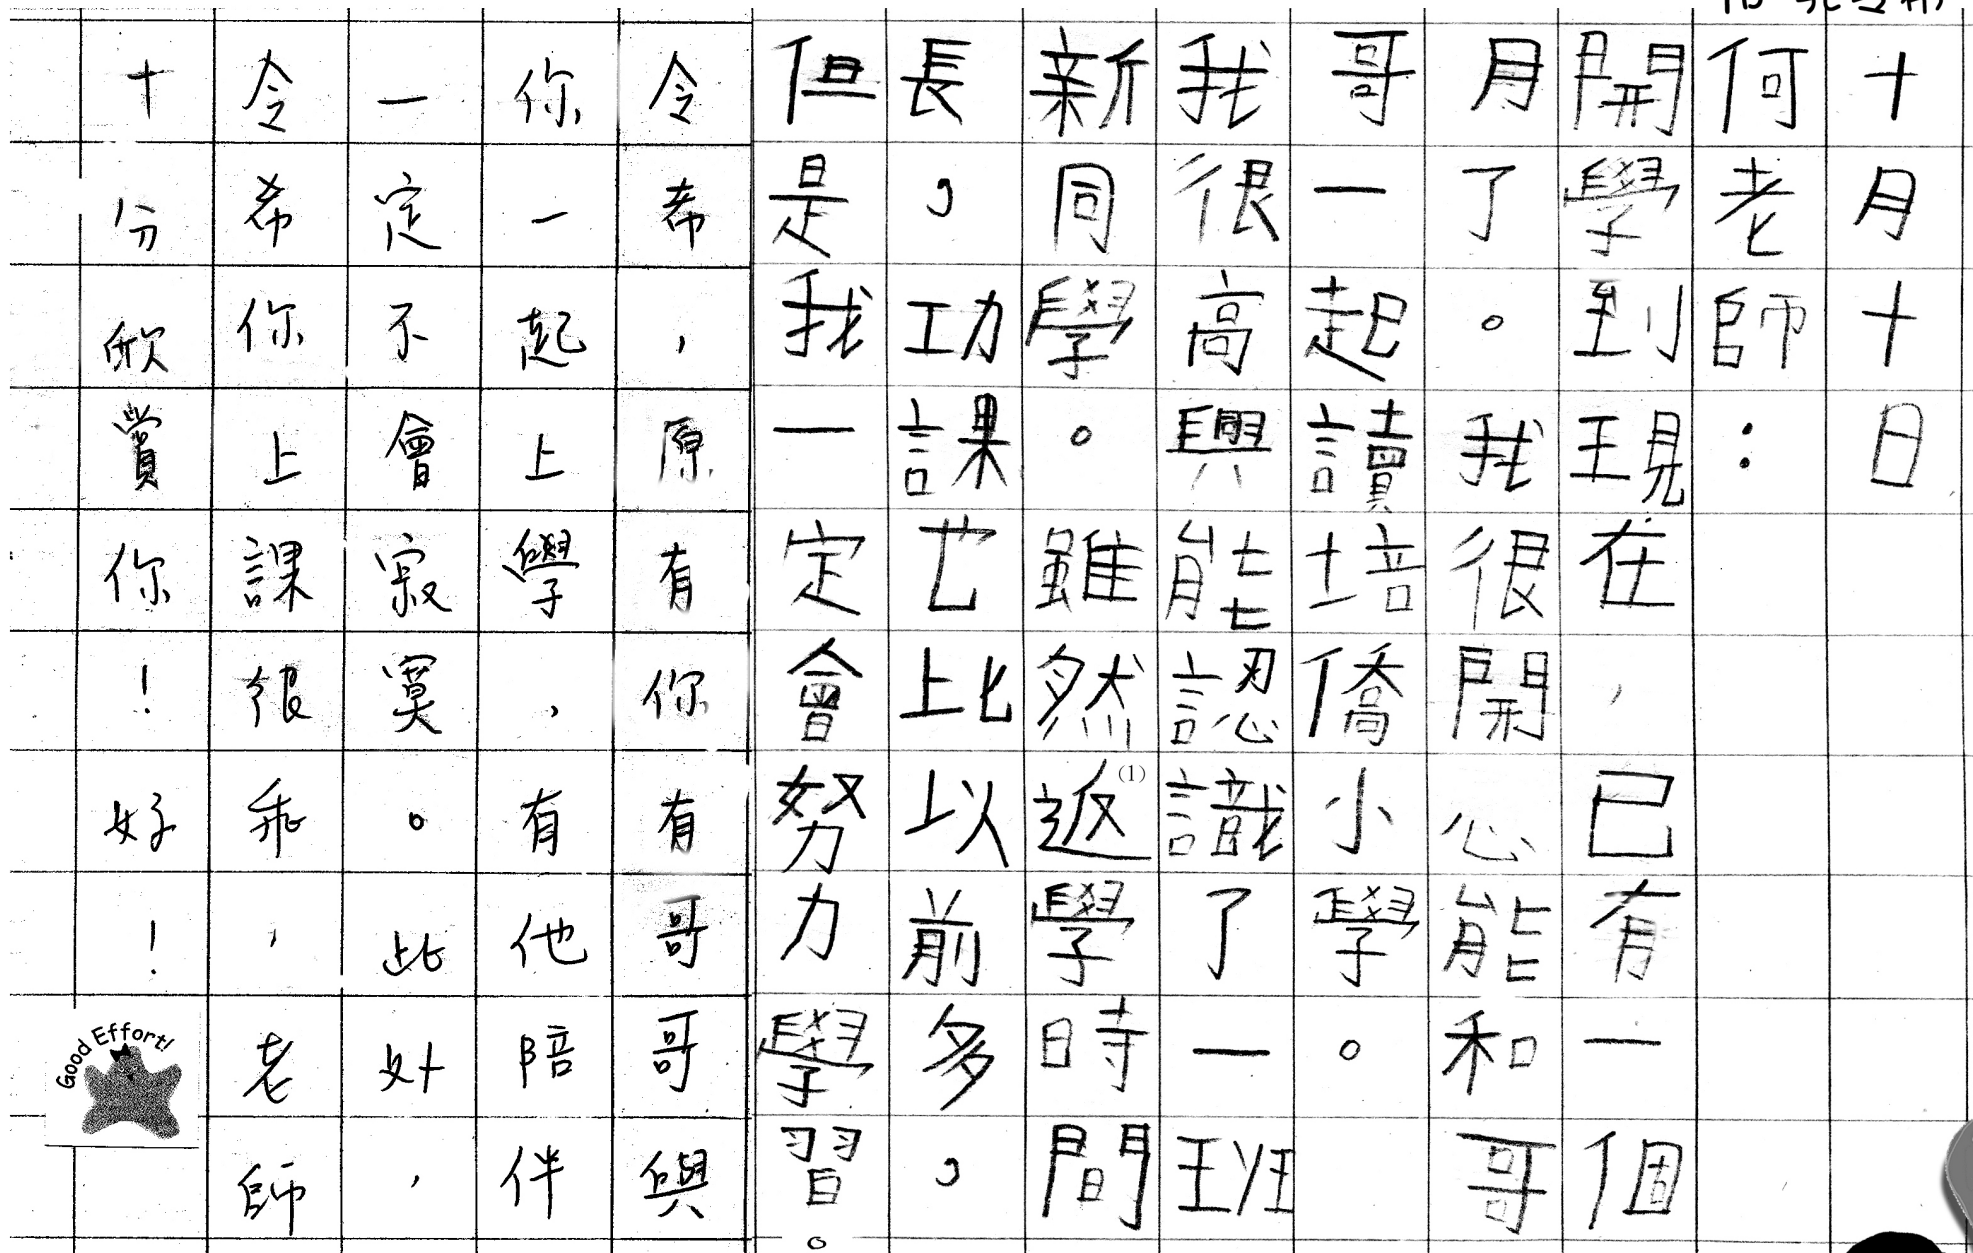 十月十日
何老師：
開學到現在，已有一個
月了。我很開心能和哥
哥一起讀培僑小學。
我很高興能認識了一班
新同學。雖然返學時間
(1)
長，功課也上比以前多，
但是我一定會努力學習。
令希，原有你有哥哥與
你一起上學，有他陪伴
一定不會寂寞。此外，
令希你上課很乖，老師
十分欣賞你！好！
Good Effort!